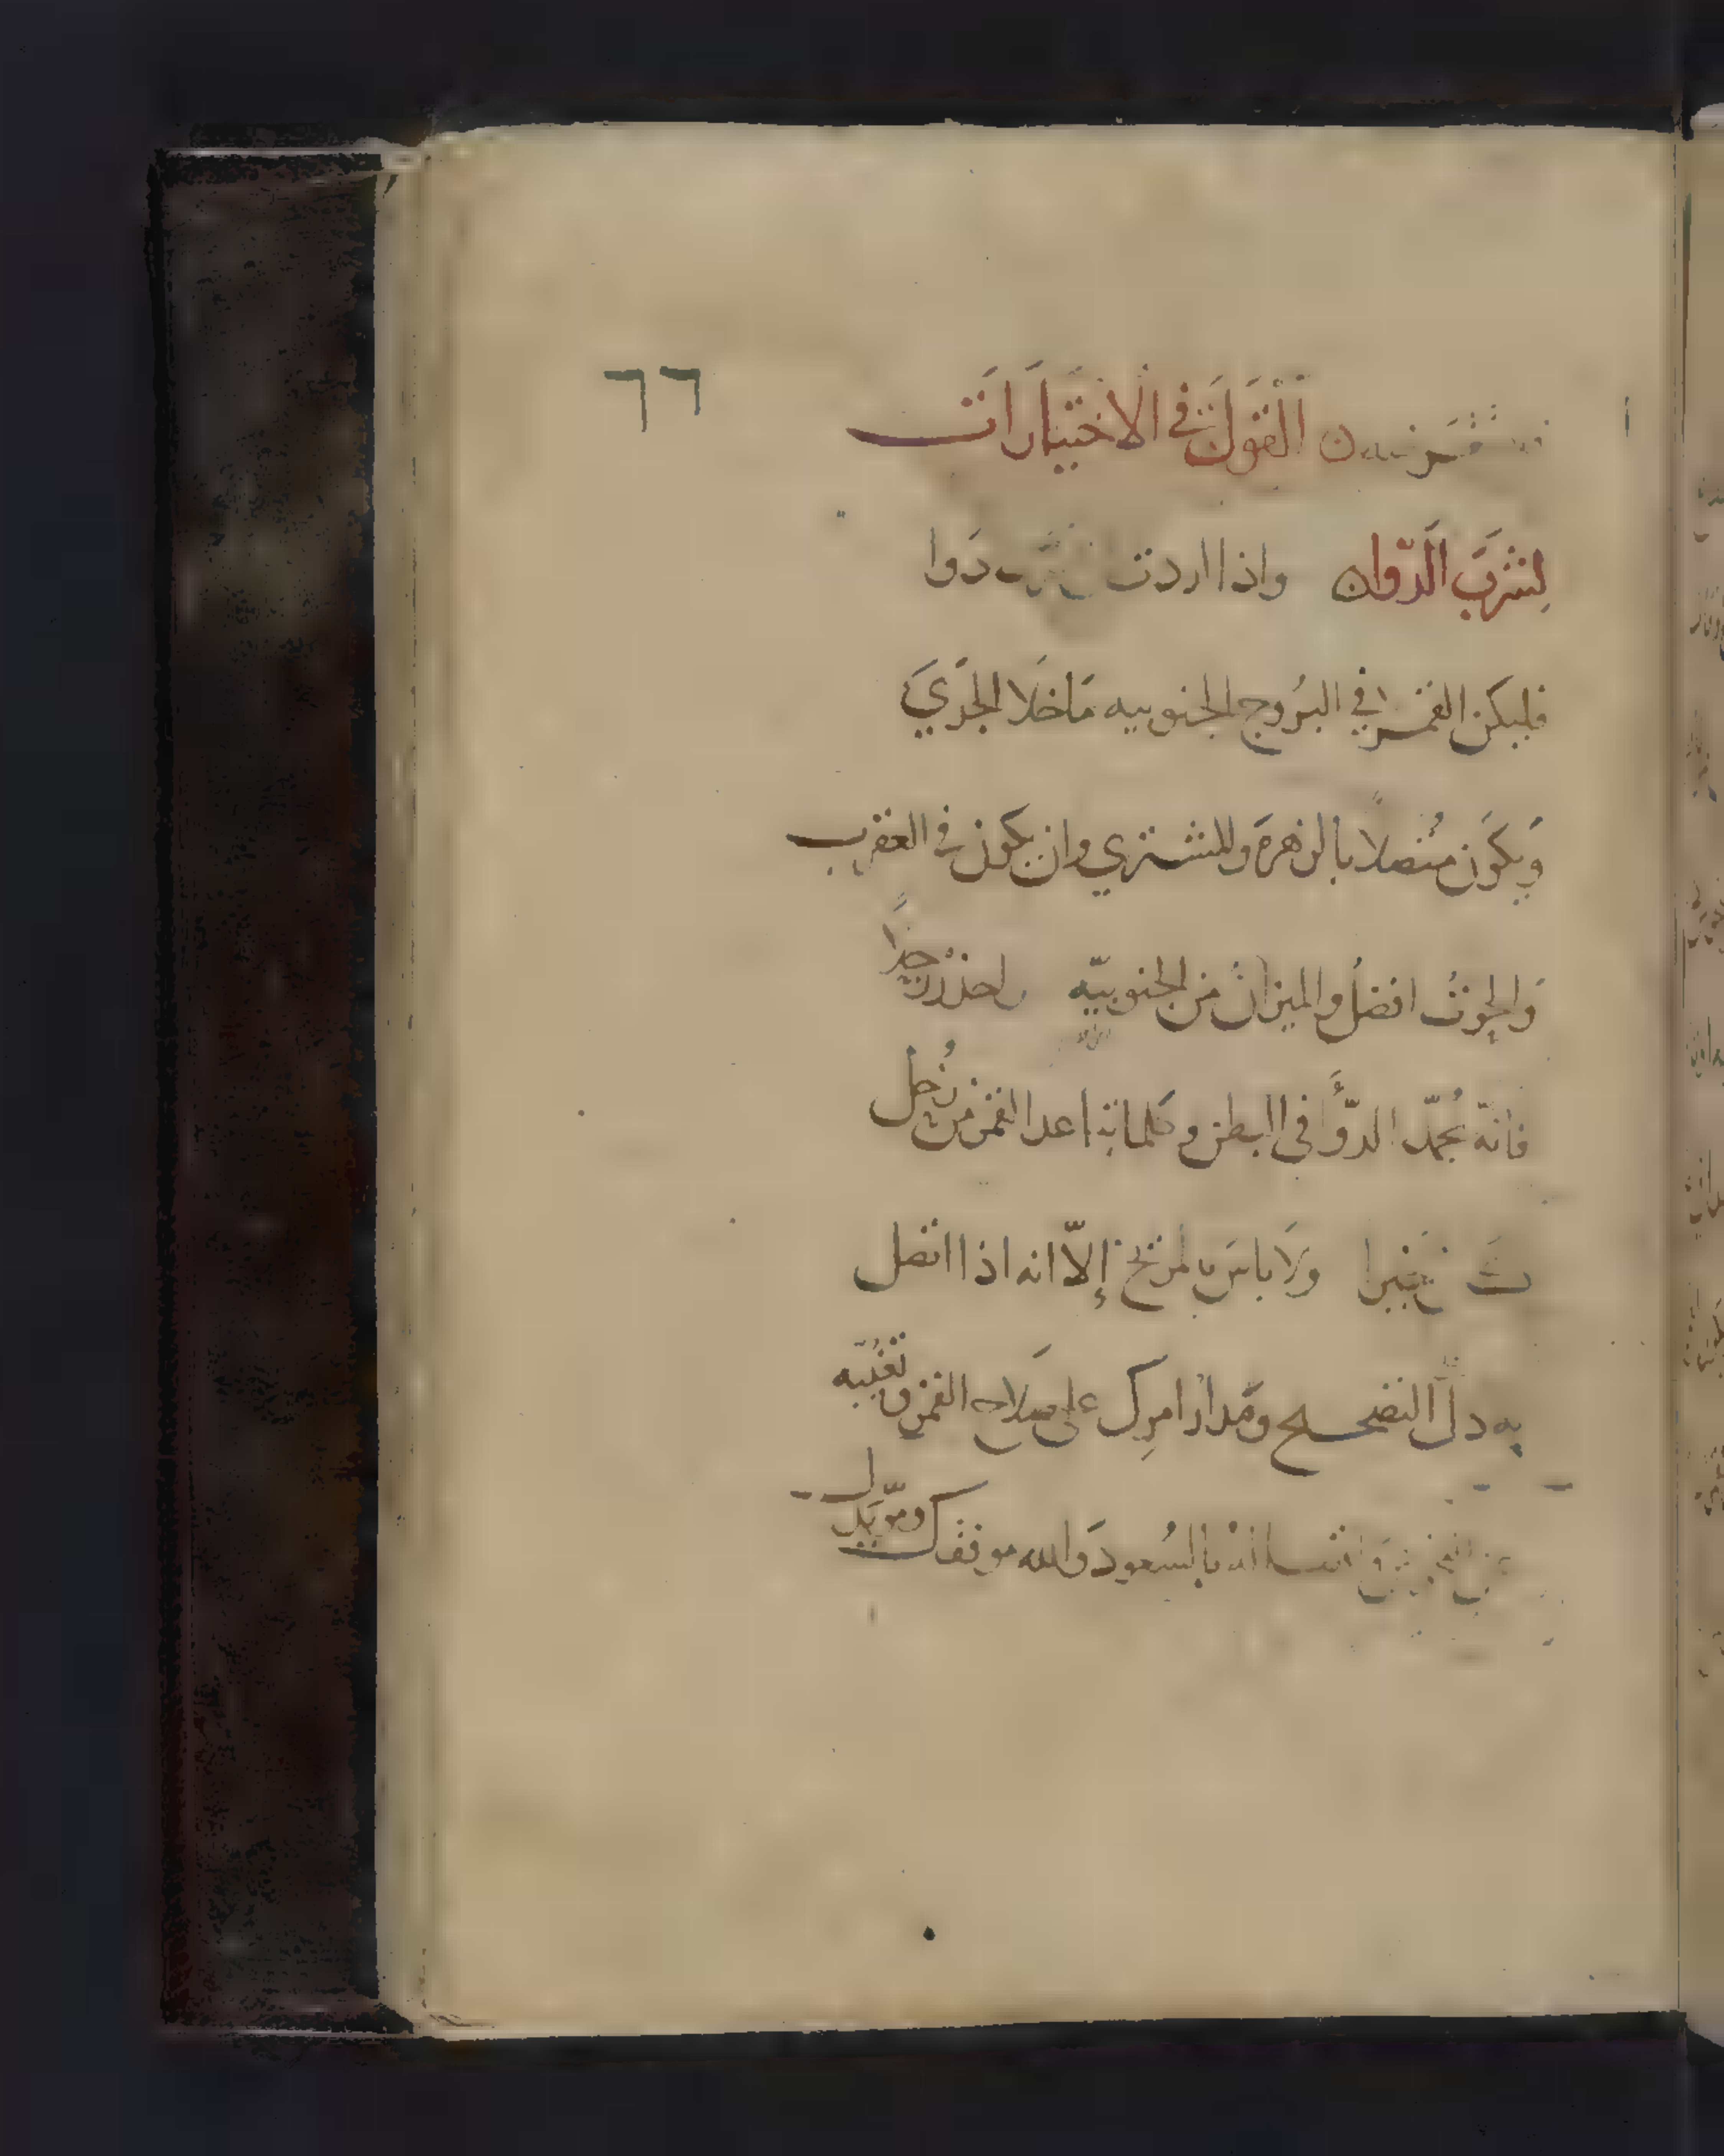 ٦٦
اَلْقَوْلُ فِي الاخْتِيَارَات
لِشُربَ الَدّوا واذا اردت شرب دَوا
فليكن القمر في البُروج الجنوبيه مَاخَلا الجَدْيَ
وَيكَون متصلاً بالزهرة وللمشتري وان يكون في العقرب
وَالحوتُ افضلُ والميزانُ من الجنوبيّه واحذر زحلا جداً
فانهَ يُجمّد الدّوأَ في البطن وكلما تباعد القمر من زُحل
كَان خيرا وَلَا باسَ بالمريخ إلّا انه اذا اتصل
به دلّ النضج ومَدار امرِك على صَلاح القمر وتغيّبه
عن النحوس وَاتصاله بالسُعود وَالله موفقك ومؤيدك